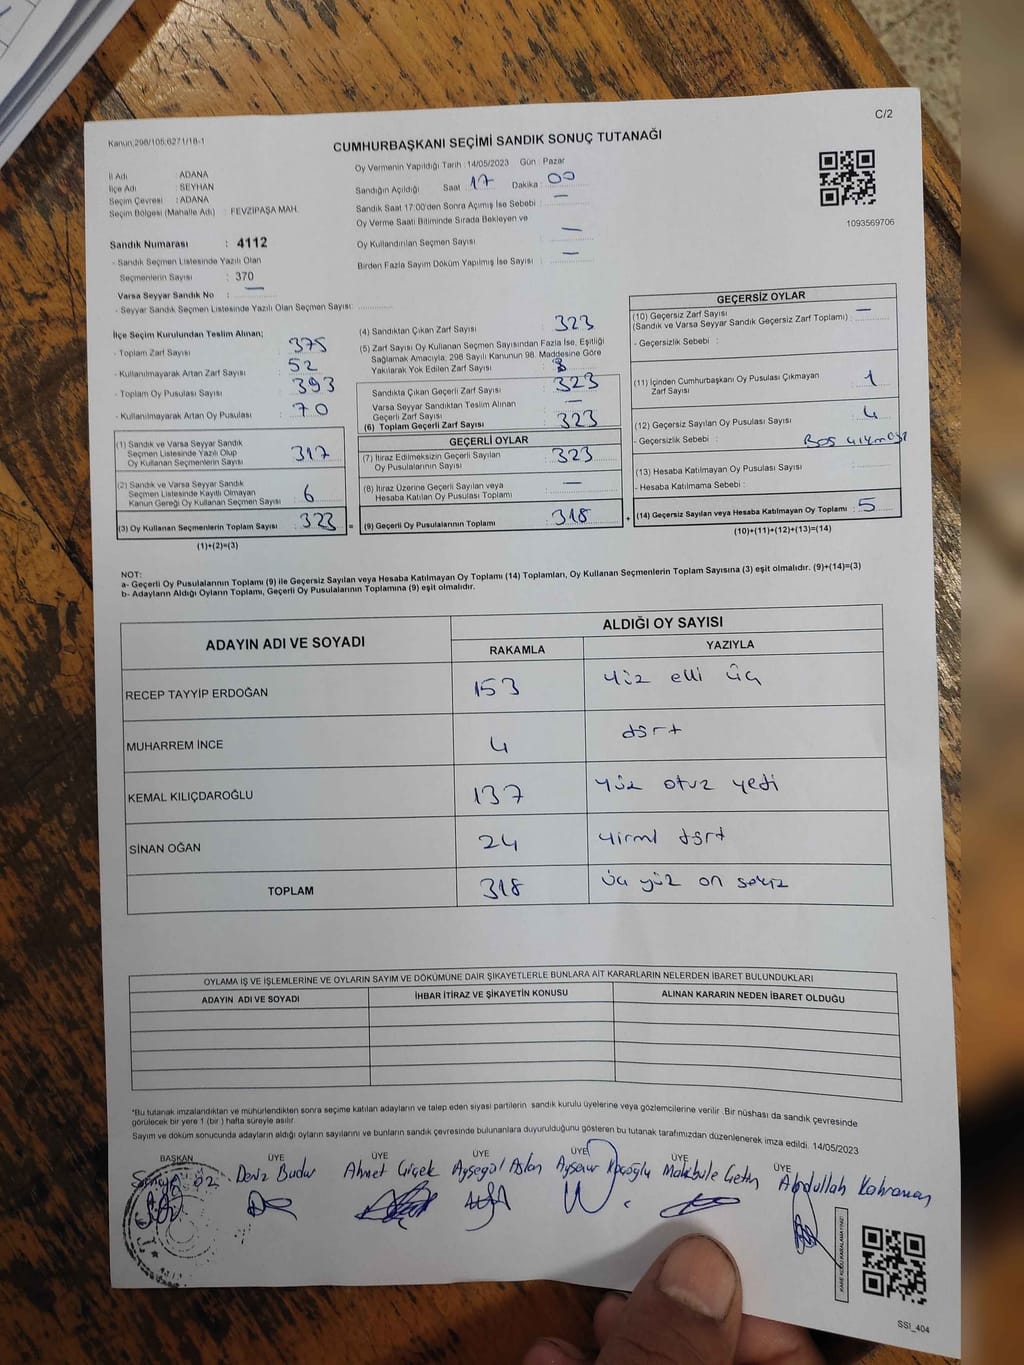 C/2
Kanun:298/105;6271/18-1
CUMHURBAŞKANI SEÇİMİ SANDIK SONUÇ TUTANAĞI
İl Adı : ADANA
İlçe Adı : SEYHAN
Seçim Çevresi : ADANA
Seçim Bölgesi (Mahalle Adı) : FEVZİPAŞA MAH.
Sandık Numarası : 4112
- Sandık Seçmen Listesinde Yazılı Olan
Seçmenlerin Sayısı : 370
Varsa Seyyar Sandık No : —
- Seyyar Sandık Seçmen Listesinde Yazılı Olan Seçmen Sayısı:
Oy Vermenin Yapıldığı Tarih : 14/05/2023 Gün : Pazar
Sandığın Açıldığı Saat : 17 Dakika : 00
Sandık Saat 17:00'den Sonra Açımış İse Sebebi : —
Oy Verme Saati Bitiminde Sırada Bekleyen ve
Oy Kullandırılan Seçmen Sayısı : —
Birden Fazla Sayım Döküm Yapılmış İse Sayısı : —
1093569706
İlçe Seçim Kurulundan Teslim Alınan;
- Toplam Zarf Sayısı : 375
- Kullanılmayarak Artan Zarf Sayısı : 52
- Toplam Oy Pusulası Sayısı : 393
- Kullanılmayarak Artan Oy Pusulası : 70
(1) Sandık ve Varsa Seyyar Sandık
Seçmen Listesinde Yazılı Olup
Oy Kullanan Seçmenlerin Sayısı : 317
(2) Sandık ve Varsa Seyyar Sandık
Seçmen Listesinde Kayıtlı Olmayan
Kanun Gereği Oy Kullanan Seçmen Sayısı : 6
(3) Oy Kullanan Seçmenlerin Toplam Sayısı : 323 =
(1)+(2)=(3)
(4) Sandıktan Çıkan Zarf Sayısı : 323
(5) Zarf Sayısı Oy Kullanan Seçmen Sayısından Fazla İse, Eşitliği
Sağlamak Amacıyla; 298 Sayılı Kanunun 98. Maddesine Göre
Yakılarak Yok Edilen Zarf Sayısı :
Sandıkta Çıkan Geçerli Zarf Sayısı : 323
Varsa Seyyar Sandıktan Teslim Alınan
Geçerli Zarf Sayısı : —
(6) Toplam Geçerli Zarf Sayısı : 323
GEÇERLİ OYLAR
(7) İtiraz Edilmeksizin Geçerli Sayılan
Oy Pusulalarının Sayısı : 323
(8) İtiraz Üzerine Geçerli Sayılan veya
Hesaba Katılan Oy Pusulası Toplamı : —
(9) Geçerli Oy Pusulalarının Toplamı : 318 +
GEÇERSİZ OYLAR
(10) Geçersiz Zarf Sayısı
(Sandık ve Varsa Seyyar Sandık Geçersiz Zarf Toplamı) : —
- Geçersizlik Sebebi :
(11) İçinden Cumhurbaşkanı Oy Pusulası Çıkmayan
Zarf Sayısı : 1
(12) Geçersiz Sayılan Oy Pusulası Sayısı : 4
- Geçersizlik Sebebi : Boş
(13) Hesaba Katılmayan Oy Pusulası Sayısı :
- Hesaba Katılmama Sebebi :
(14) Geçersiz Sayılan veya Hesaba Katılmayan Oy Toplamı : 5
(10)+(11)+(12)+(13)=(14)
NOT:
a- Geçerli Oy Pusulalarının Toplamı (9) ile Geçersiz Sayılan veya Hesaba Katılmayan Oy Toplamı (14) Toplamları, Oy Kullanan Seçmenlerin Toplam Sayısına (3) eşit olmalıdır. (9)+(14)=(3)
b- Adayların Aldığı Oyların Toplamı, Geçerli Oy Pusulalarının Toplamına (9) eşit olmalıdır.
ADAYIN ADI VE SOYADI ALDIĞI OY SAYISI
RAKAMLA YAZIYLA
RECEP TAYYİP ERDOĞAN 153 Yüz elli üç
MUHARREM İNCE 4 dört
KEMAL KILIÇDAROĞLU 137 Yüz otuz yedi
SİNAN OĞAN 24 Yirmi dört
TOPLAM 318 Üç yüz on sekiz
OYLAMA İŞ VE İŞLEMLERİNE VE OYLARIN SAYIM VE DÖKÜMÜNE DAİR ŞİKAYETLERLE BUNLARA AİT KARARLARIN NELERDEN İBARET BULUNDUKLARI
ADAYIN ADI VE SOYADI İHBAR İTİRAZ VE ŞİKAYETİN KONUSU ALINAN KARARIN NEDEN İBARET OLDUĞU
*Bu tutanak imzalandıktan ve mühürlendikten sonra seçime katılan adayların ve talep eden siyasi partilerin sandık kurulu üyelerine veya gözlemcilerine verilir .Bir nüshası da sandık çevresinde
görülecek bir yere 1 (bir ) hafta süreyle asılır.
Sayım ve döküm sonucunda adayların aldığı oyların sayılarını ve bunların sandık çevresinde bulunanlara duyurulduğunu gösteren bu tutanak tarafımızdan düzenlenerek imza edildi. 14/05/2023
BAŞKAN ÜYE ÜYE ÜYE ÜYE ÜYE ÜYE
Öz Deniz Budur Ahmet Çiçek Ayşegül Aslan Aysenur Kocaoğlu Makbule Çetin Abdullah Kahraman
KARE KODU KARALAMAYINIZ!
SSI_404